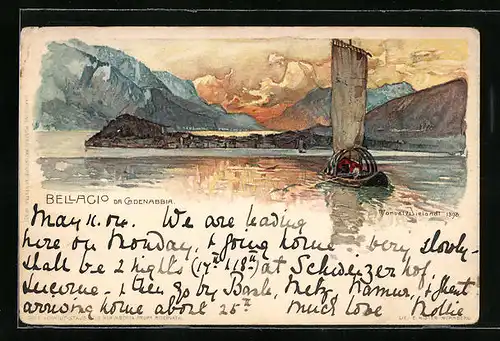 BELLAGIO DA CADENABBIA.
Manuel Wielandt 1898
May 11. 04. We are leading
here on Monday, & going home very slowly-
shall be 2 nights (17th & 18th) at Schweizerhof,
Lucerne - & then go by Basle, Metz, Namur, &
arriving home about 25th much love Mollie